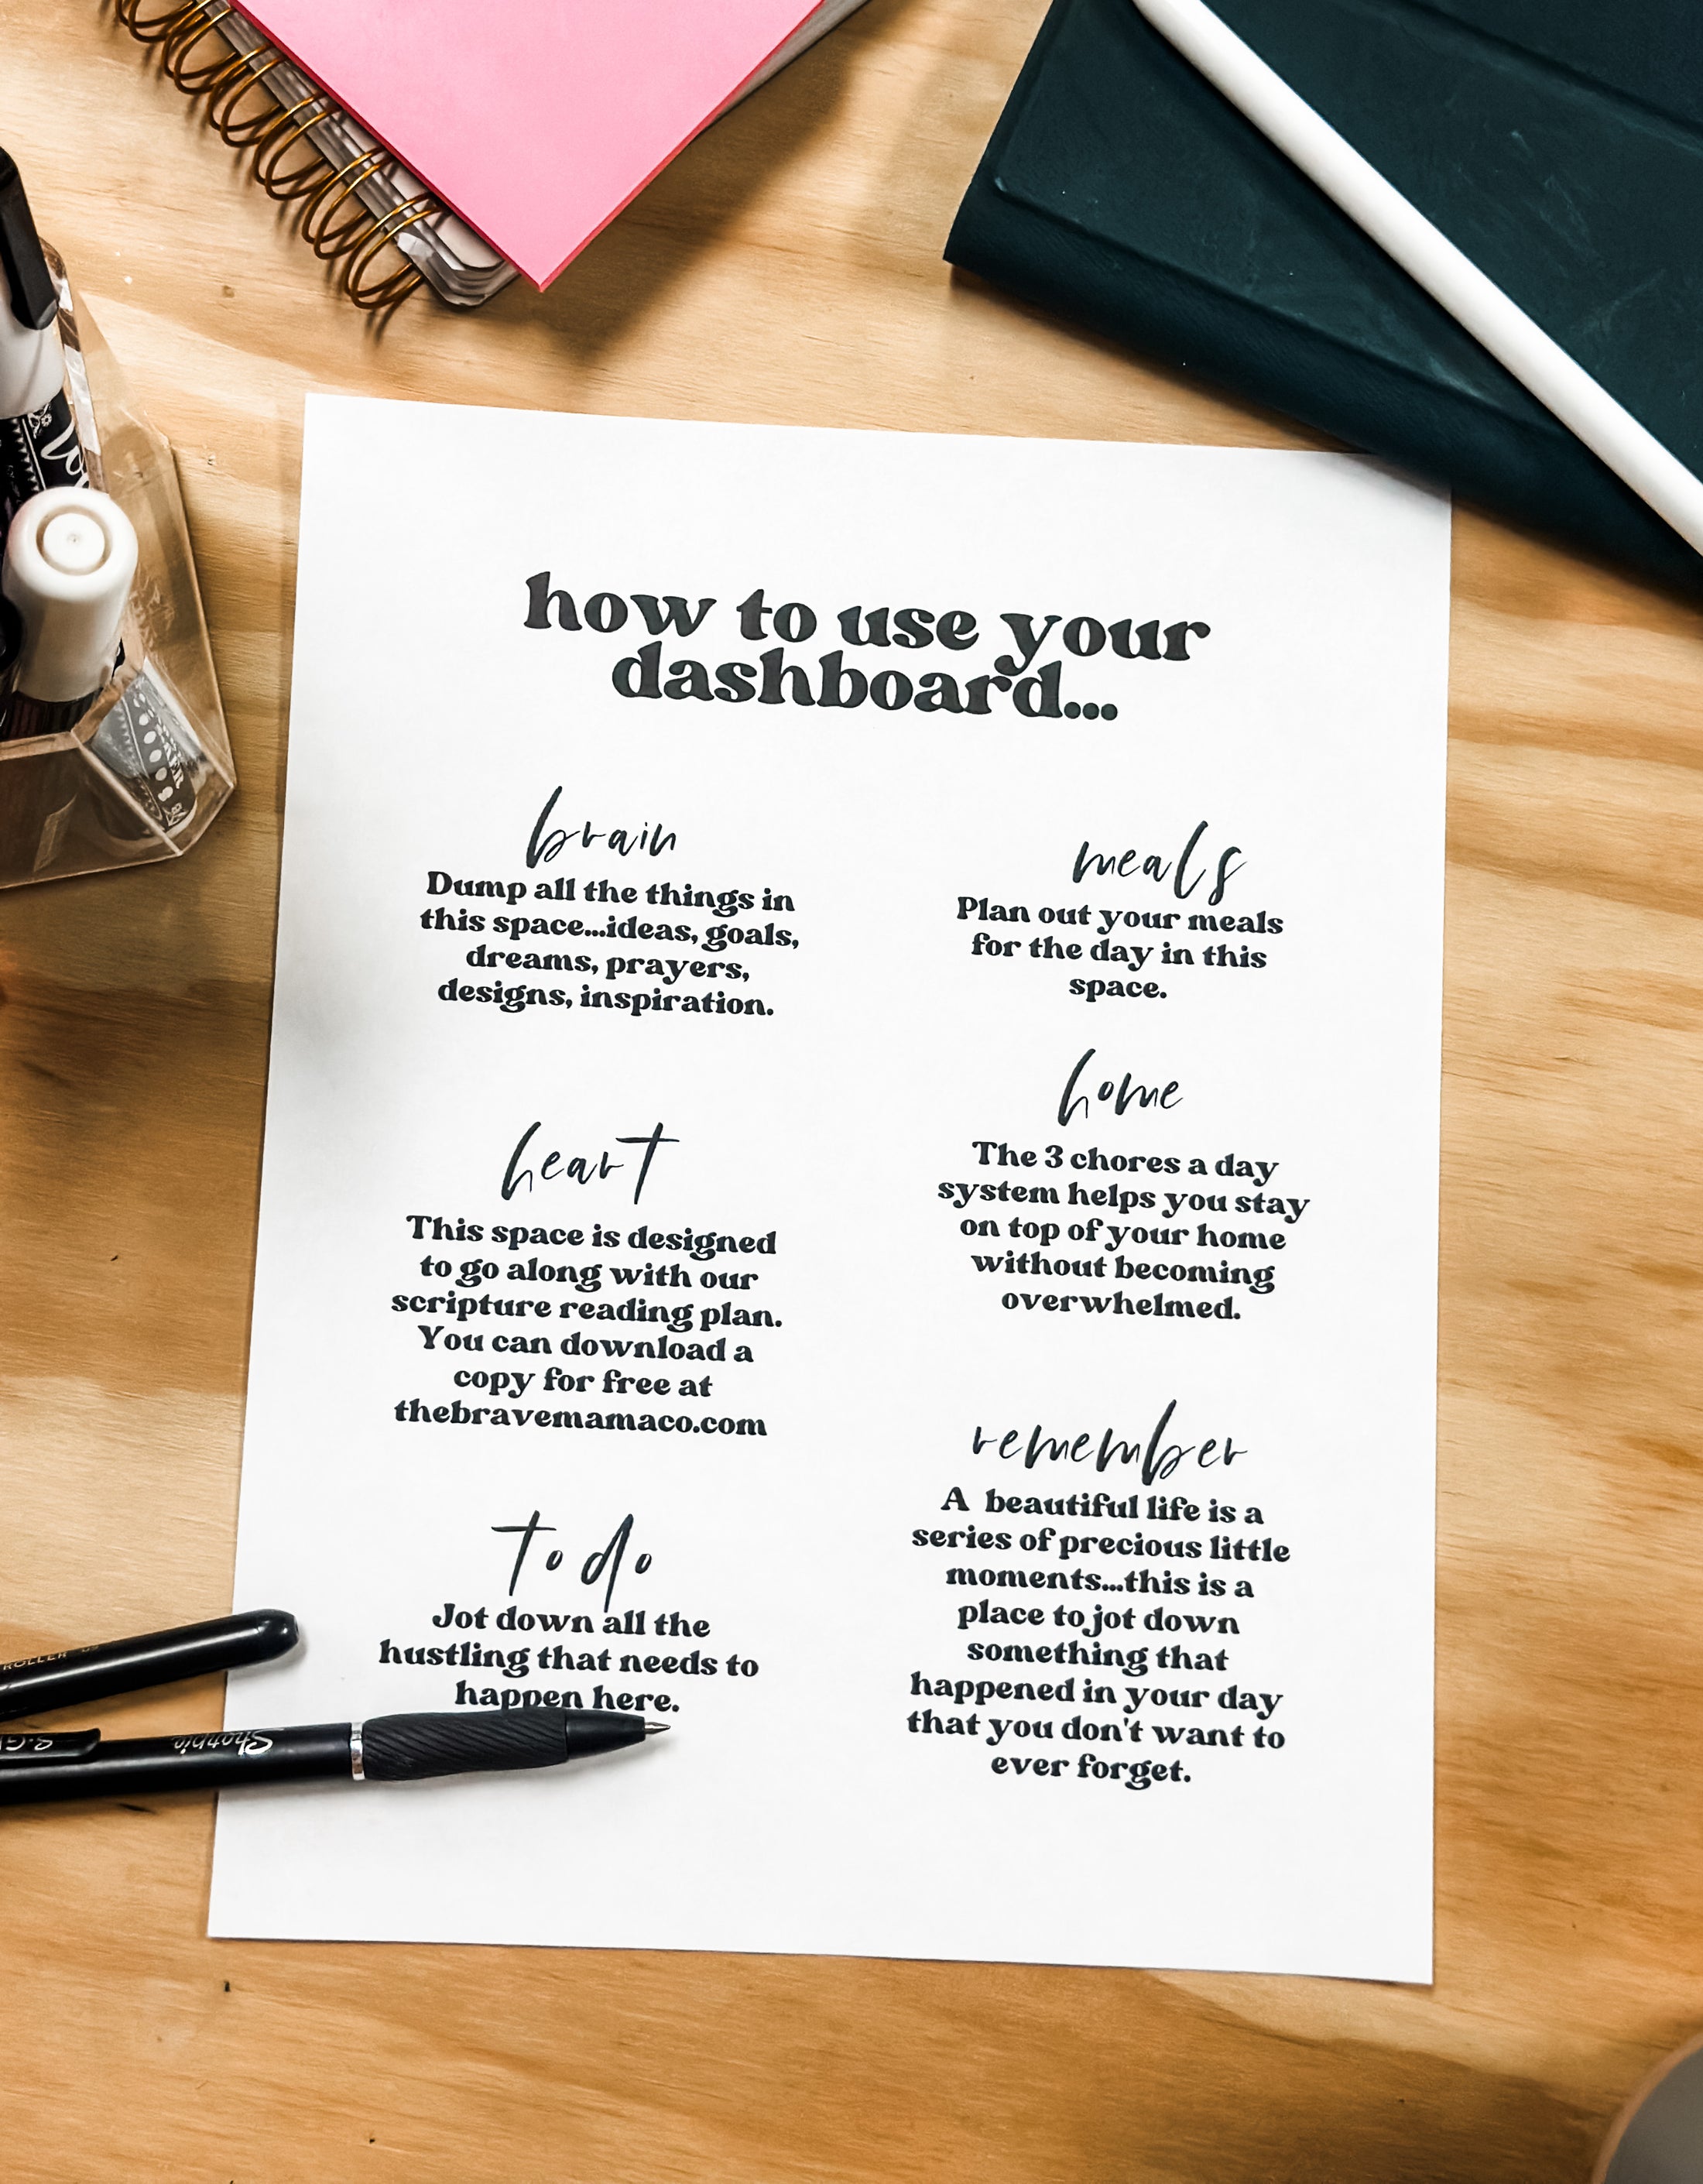 how to use your
dashboard...
brain
Dump all the things in
this space...ideas, goals,
dreams, prayers,
designs, inspiration.
heart
This space is designed
to go along with our
scripture reading plan.
You can download a
copy for free at
thebravemamaco.com
to do
Jot down all the
hustling that needs to
happen here.
meals
Plan out your meals
for the day in this
space.
home
The 3 chores a day
system helps you stay
on top of your home
without becoming
overwhelmed.
remember
A  beautiful life is a
series of precious little
moments...this is a
place to jot down
something that
happened in your day
that you don't want to
ever forget.
ROLLER
Sharpie